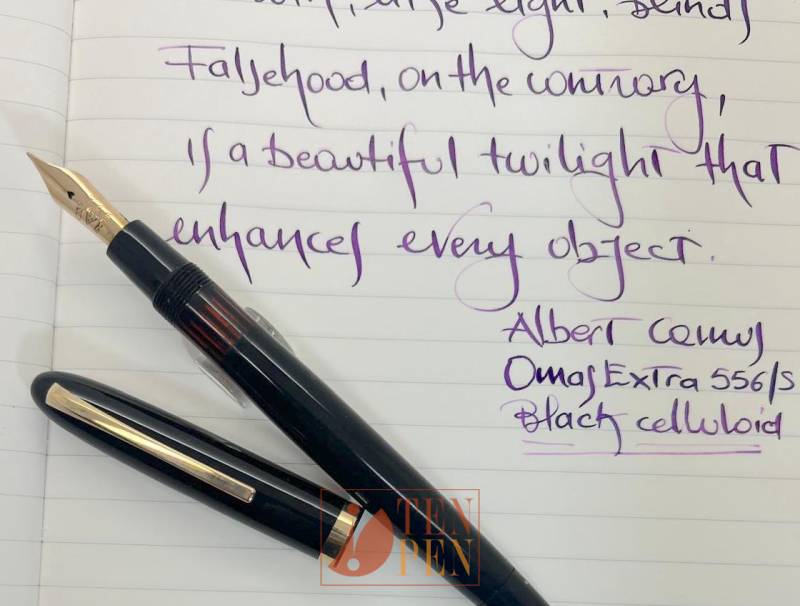 like light, blinds
Falsehood, on the contrary,
is a beautiful twilight that
enhances every object.
Albert Camus
Omas Extra 556/S
Black celluloid
TEN
PEN